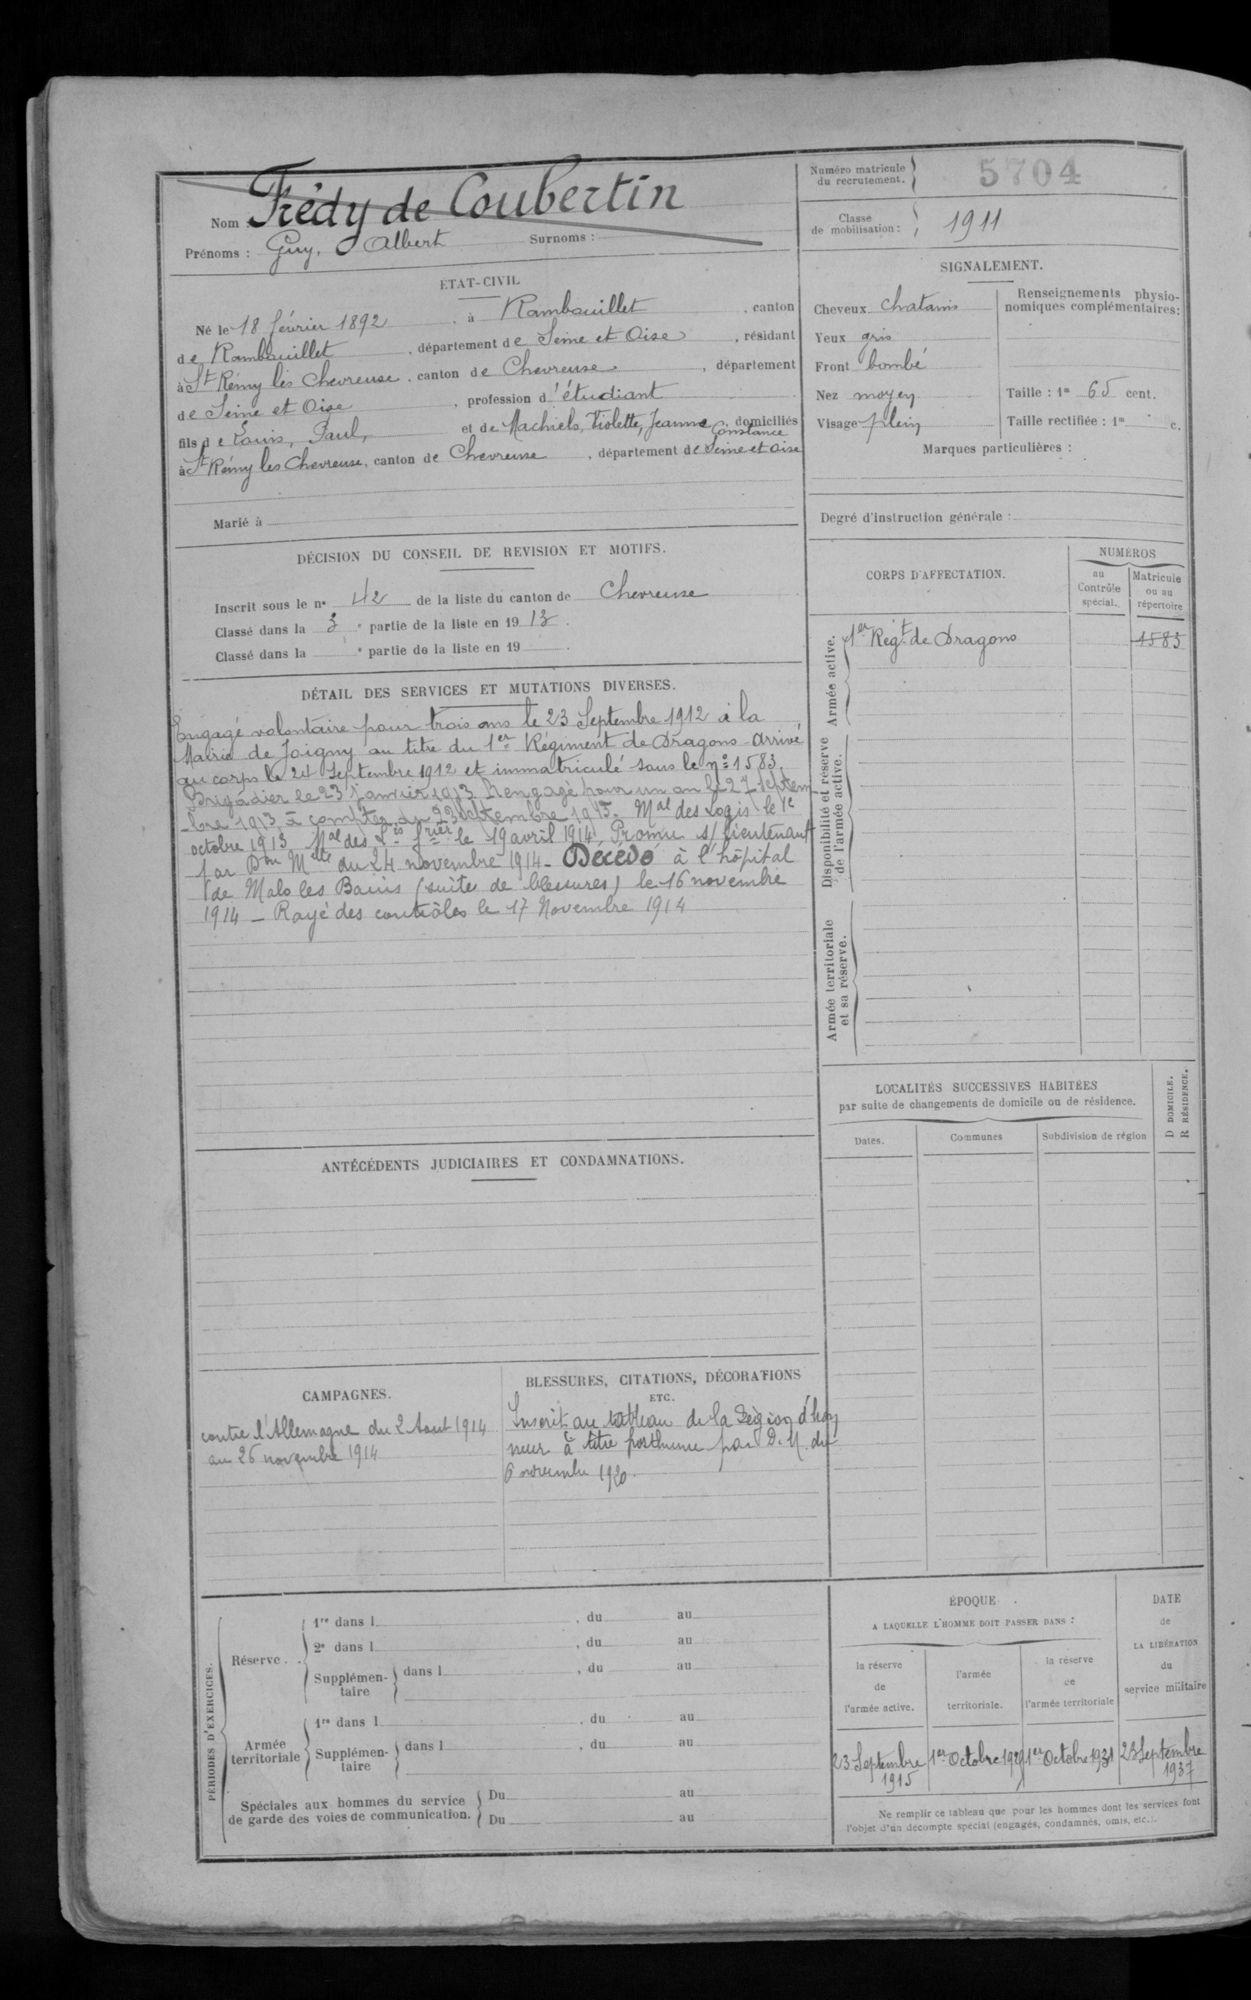 Nom : Frédy de Coubertin
Prénoms : Guy, Albert Surnoms :
Numéro matricule du recrutement. 5704
Classe de mobilisation : 1911
ÉTAT-CIVIL
Né le 18 février 1892, à Rambouillet, canton
de Rambouillet, département de Seine et Oise, résidant
à St Rémy les Chevreuse, canton de Chevreuse, département
de Seine et Oise, profession d'étudiant
fils de Louis, Paul, et de Machiels, Violette, Jeanne, Constance, domiciliés
à St Rémy les Chevreuse, canton de Chevreuse, département de Seine et Oise
Marié à
SIGNALEMENT.
Cheveux chatains
Yeux gris
Front bombé
Nez moyen
Visage plein
Renseignements physio-
nomiques complémentaires:
Taille : 1m 65 cent.
Taille rectifiée : 1m c.
Marques particulières :
Degré d'instruction générale :
DÉCISION DU CONSEIL DE REVISION ET MOTIFS.
Inscrit sous le n° 42 de la liste du canton de Chevreuse
Classé dans la 3 e partie de la liste en 1913.
Classé dans la e partie de la liste en 19 .
DÉTAIL DES SERVICES ET MUTATIONS DIVERSES.
Engagé volontaire pour trois ans le 23 Septembre 1912 à la
Mairie de Joigny au titre du 1er Régiment de Dragons Arrivé
au corps le 24 Septembre 1912 et immatriculé sous le n° 1583.
Brigadier le 23 Janvier 1913 Rengagé pour un an le 27 septem-
-bre 1913 à compter du 23 septembre 1915. Mal des Logis le 1e
octobre 1913 Mal des Lis frier le 19 avril 1914 Promu s/lieutenant
par Don Mlle du 24 novembre 1914 - Décédé à l'hôpital
de Malo les Bains (suite de blessures) le 16 novembre
1914 - Rayé des contrôles le 17 Novembre 1914
CORPS D'AFFECTATION.
NUMÉROS
au Contrôle spécial.
Matricule ou au répertoire
Armée active.
1er Regt de Dragons 1583
Disponibilité et réserve de l'armée active.
Armée territoriale et sa réserve.
LOCALITÉS SUCCESSIVES HABITÉES
par suite de changements de domicile ou de résidence.
Dates.
Communes
Subdivision de région
D DOMICILE.
R RÉSIDENCE.
ANTÉCÉDENTS JUDICIAIRES ET CONDAMNATIONS.
CAMPAGNES.
contre l'Allemagne du 2 Aout 1914
au 26 novembre 1914
BLESSURES, CITATIONS, DÉCORATIONS
ETC.
Inscrit au tableau de la Légion d'hon
neur à titre posthume par D. M. du
6 novembre 1920.
PÉRIODES D'EXERCICES.
Réserve.
1re dans l , du au
2e dans l , du au
Supplémen-
taire dans l , du au
Armée
territoriale
1re dans l , du au
Supplémen-
taire dans l , du au
Spéciales aux hommes du service
de garde des voies de communication.
Du au
Du au
ÉPOQUE
A LAQUELLE L'HOMME DOIT PASSER DANS :
la réserve
de
l'armée active.
l'armée
territoriale.
la réserve
de
l'armée territoriale
DATE
de
LA LIBÉRATION
du
service militaire
23 Septembre 1915
1er Octobre 1929
1er Octobre 1931
23 Septembre 1937
Ne remplir ce tableau que pour les hommes dont les services font
l'objet d'un décompte spécial (engagés, condamnés, omis, etc.).